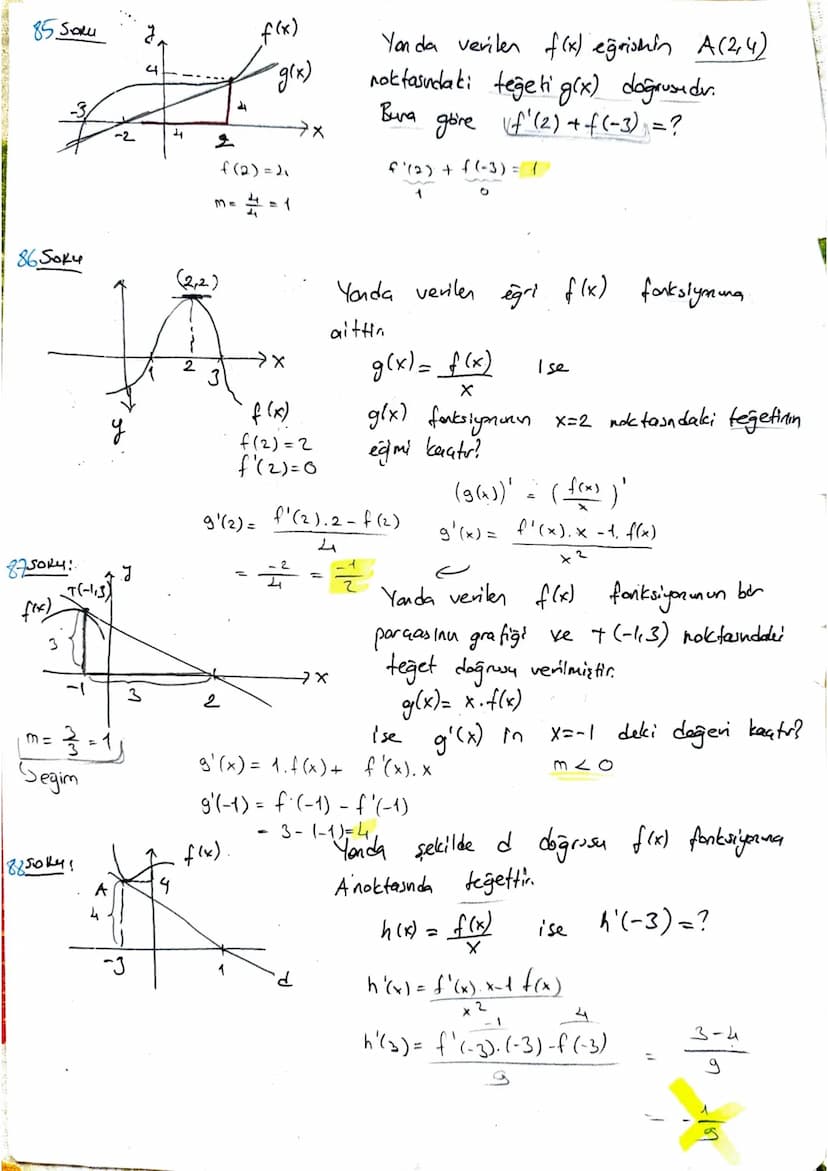 85 Soru
y
f(x)
g(x)
4
4
-3
-2
4
2
x
f(2)=4
m= 4/4 = 1
Yanda verilen f(x) eğrisinin A(2,4)
noktasındaki teğeti g(x) doğrusudur.
Buna göre f'(2)+f(-3)=?
f'(2) + f(-3) = 1
1 0
86 Soru
(2,2)
1
2
3
x
y
f(x)
f(2)=2
f'(2)=0
Yanda verilen eğri f(x) fonksiyonuna
aittir.
g(x)= f(x)/x ise
g(x) fonksiyonunun x=2 noktasındaki teğetinin
eğimi kaçtır?
(g(x))' = (f(x)/x)'
g'(x)= f'(x).x -1.f(x) / x²
g'(2)= f'(2).2-f(2) / 4
= -2/4 = -1/2
87 Soru:
y
T(-1,3)
f(x)
3
-1
3
2
x
m= 3/3 = 1
eğim
Yanda verilen f(x) fonksiyonunun bir
parçasının grafiği ve T(-1,3) noktasındaki
teğet doğrusu verilmiştir.
g(x)= x.f(x)
ise g'(x) in x=-1 deki değeri kaçtır?
m<0
g'(x)= 1.f(x)+ f'(x).x
g'(-1) = f(-1) - f'(-1)
= 3-(-1)=4
88 Soru:
f(x)
A
4
4
-3
1
d
Yanda şekilde d doğrusu f(x) fonksiyonuna
A noktasında teğettir.
h(x) = f(x)/x ise h'(-3)=?
h'(x)= f'(x).x-1 f(x) / x²
-1 4
h'(3)= f'(-3).(-3)-f(-3) / 9 = 3-4 / 9
= -1/9